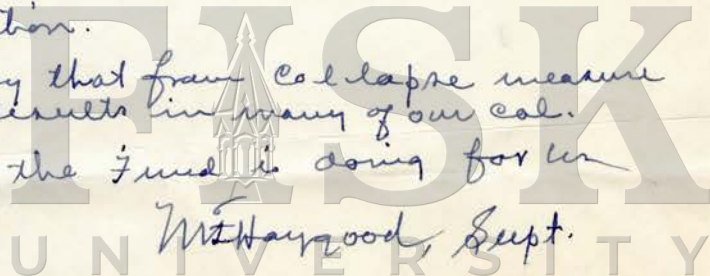 tion.
y that from collapse measure
results in many of our col.
the Fund is doing for us
M Haygood, Supt.
FISK
UNIVERSITY